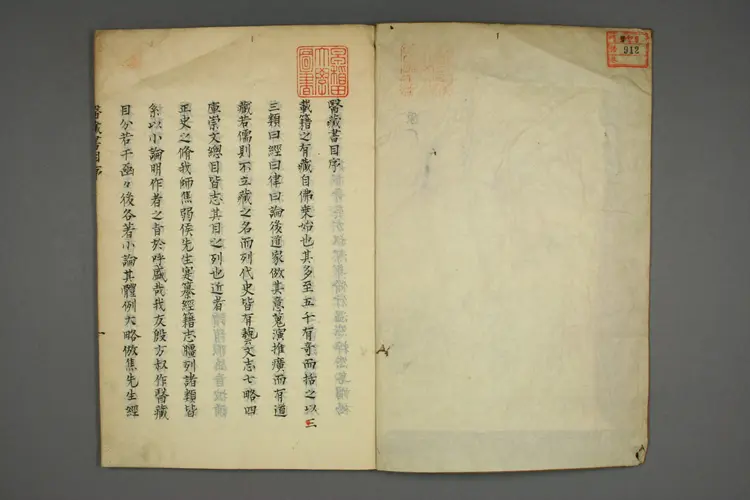 醫藏書目序
載籍之有藏自佛乘始也其多至五千有奇而括之以三
三類曰經曰律曰論後道家倣其意蒐演推廣而有道
藏若儒則不立藏之名而列代史皆有藝文志七略四
庫崇文總目皆志其目之列也近者
正史之脩我師焦弱侯先生寔纂經籍志臚列諸類皆
系以小論明作者之旨於呼盛哉我友殷方叔作醫藏
目分若干函々後各著小論其體例大略倣焦先生經
醫藏書目序
一
912